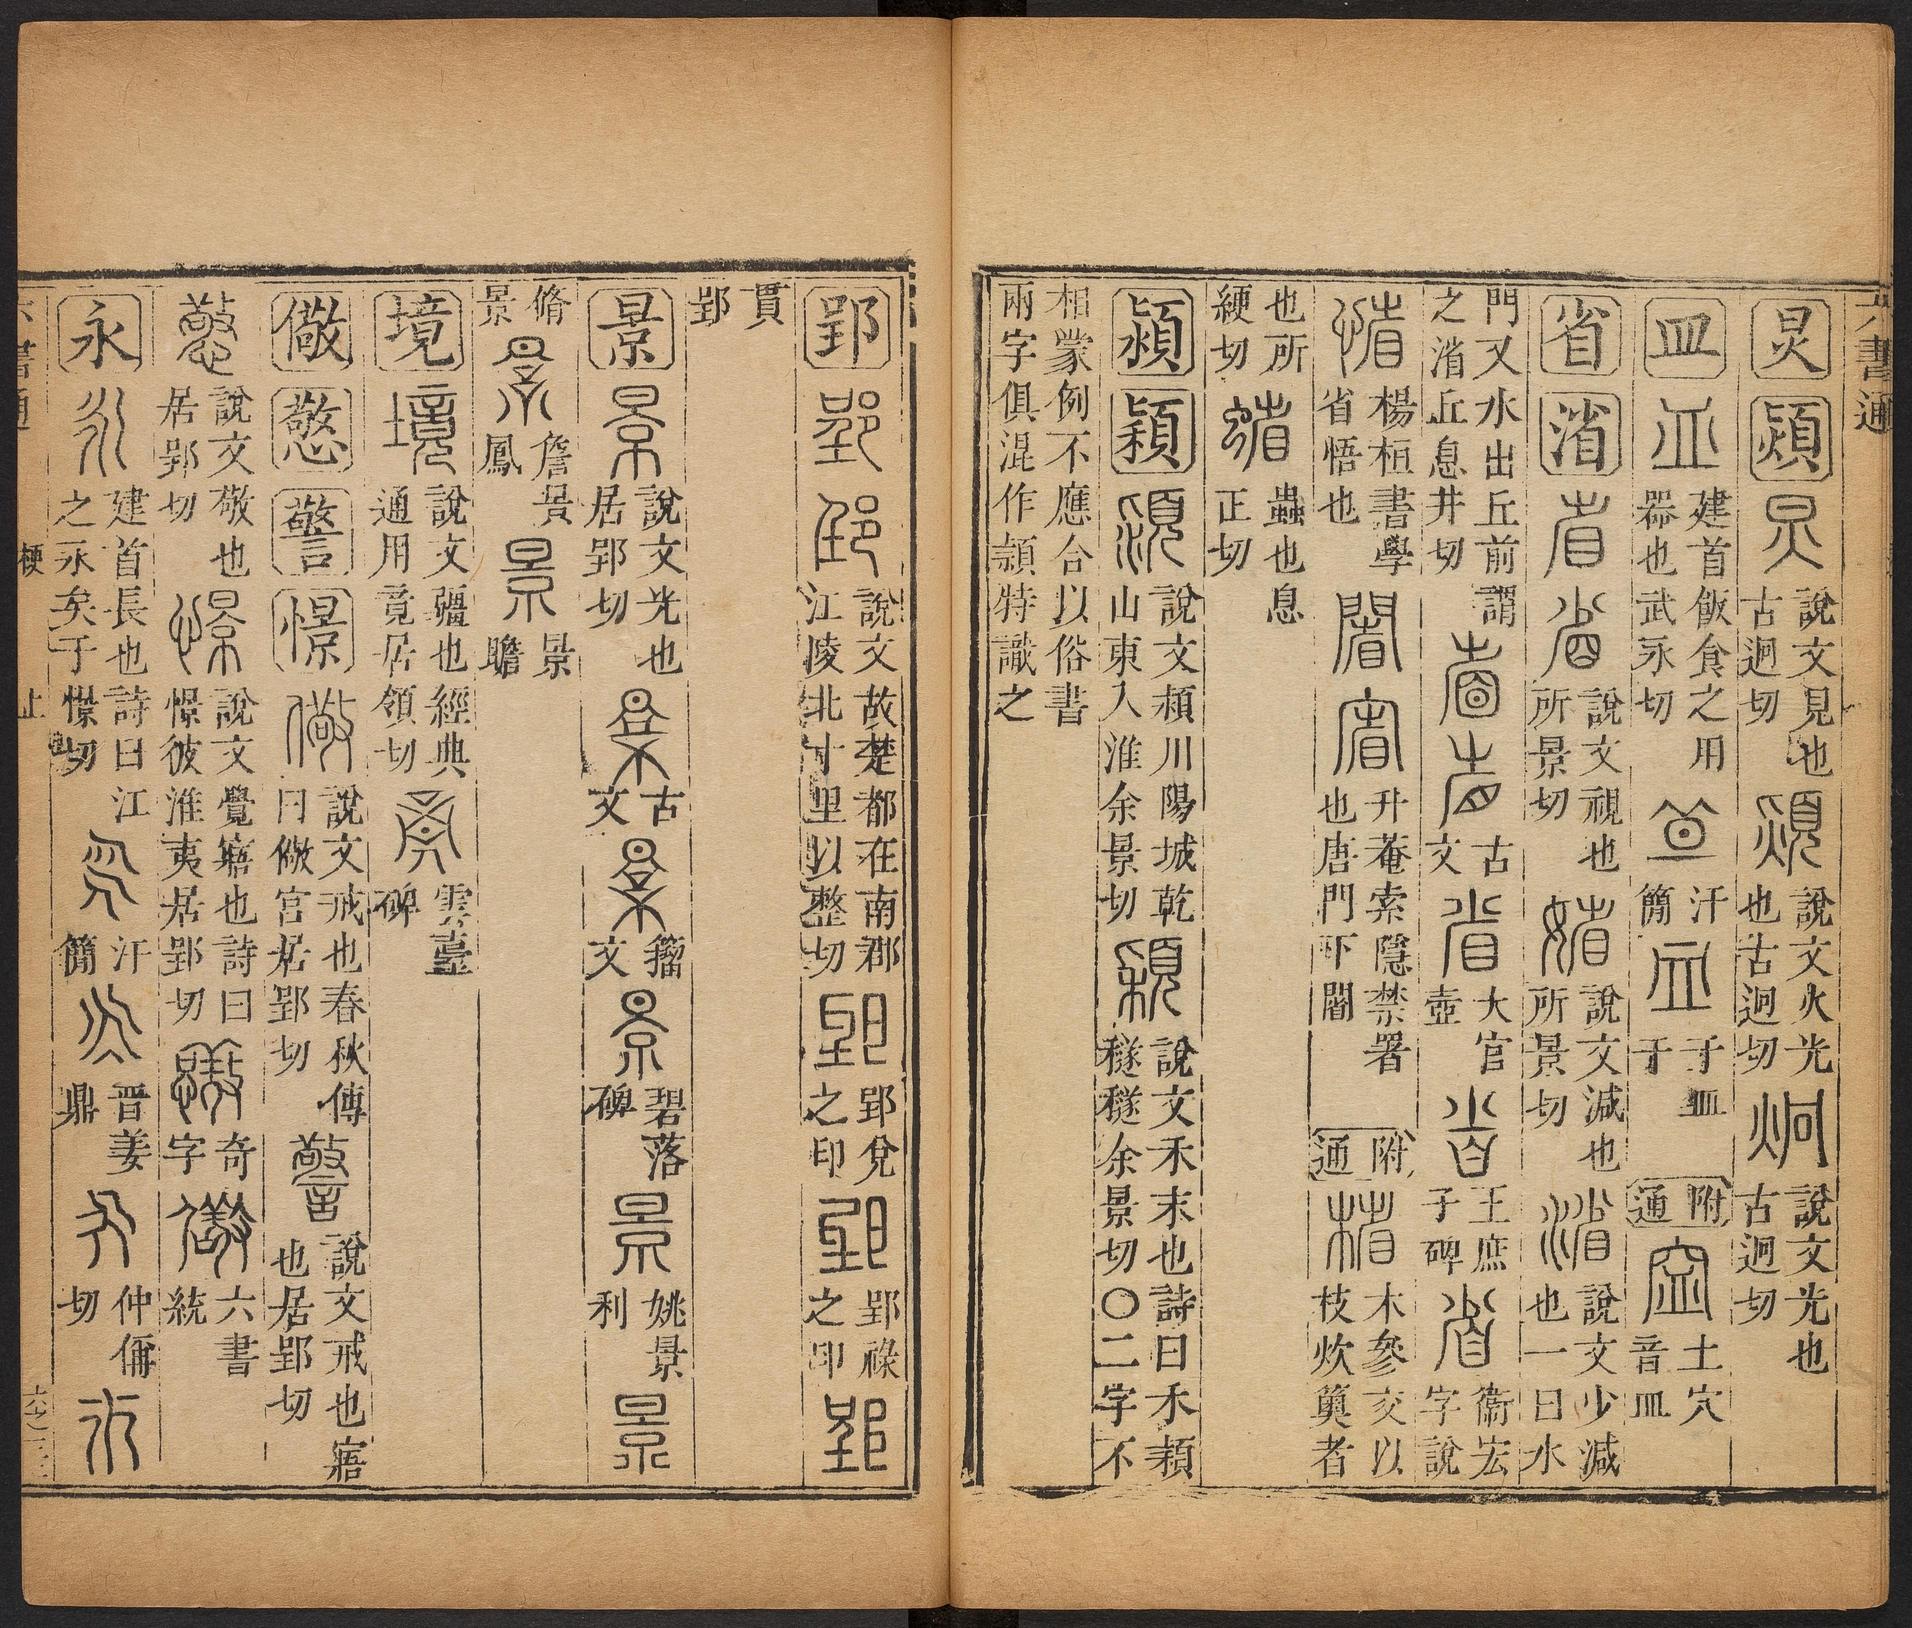 六書通
炅熲炅說文見也古迥切熲說文火光也古迥切炯說文光也古迥切
皿皿建首飯食之用器也武永切皿汗簡皿于于皿附通𥥔土穴音皿
省渻省省說文視也所景切㛮說文減也所景切渻說文少減也一曰水
門又水出丘前謂之渻丘息井切省省古文省大官壺省王庶子碑省衞宏字說
惜楊桓書學省悟也闇𡪗升菴索隱禁署也唐門下闇附通楮木參交以枝炊䉛者
也所綆切蛸蟲也息正切
潁穎潁說文潁川陽城乾山東入淮余景切穎說文禾末也詩曰禾穎穟穟余景切〇二字不
相蒙例不應合以俗書
兩字俱混作頴特識之
郢郢郢說文故楚都在南郡江陵北十里以整切郢郢兌之印郢郢祿之印郢
貫郢
景景說文光也居郢切景古文景籀文景碧落碑景姚景利景
脩景景詹景鳳景景瞻
境境說文疆也經典通用竟居領切竟雲臺碑
儆憼警憬儆說文戒也春秋傳曰儆宮居郢切警說文戒也寤也居郢切
憼說文敬也居郢切憬說文覺寤也詩曰憬彼淮夷居郢切憼奇字儆六書統
永永建首長也詩曰江之永矣于憬切永汗簡永晉姜鼎永仲偁切永
六書通 梗 上 六之三三